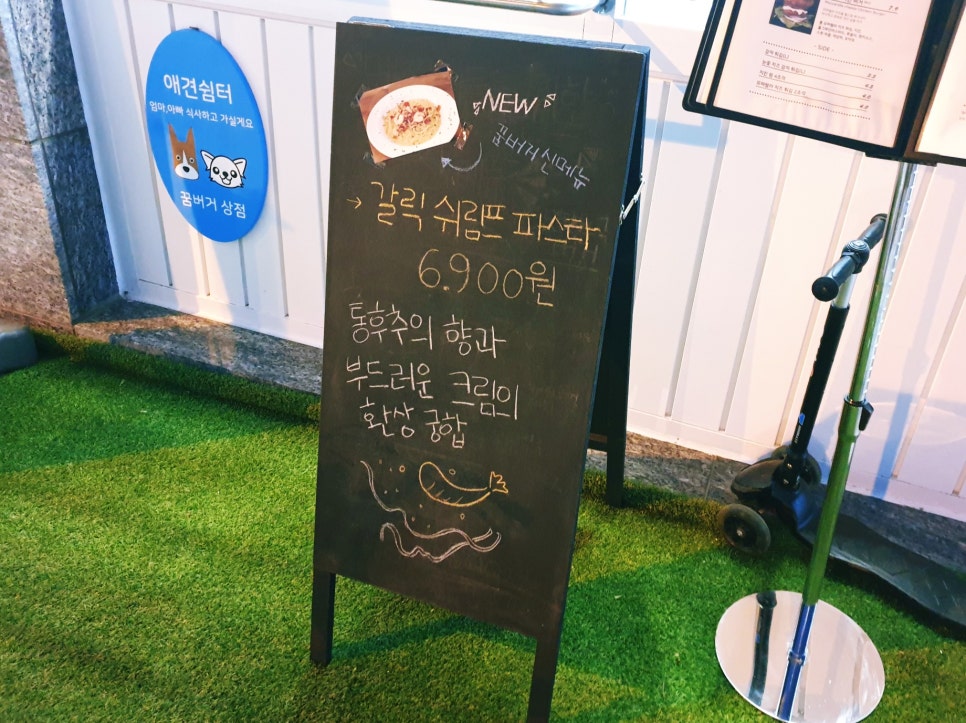 애견쉼터
엄마,아빠 식사하고 가실게요
꿈버거 상점
NEW
꿈버거 신메뉴
→ 갈릭 쉬림프 파스타
6.900원
통후추의 향과
부드러운 크림의
환상 궁합
- SIDE -